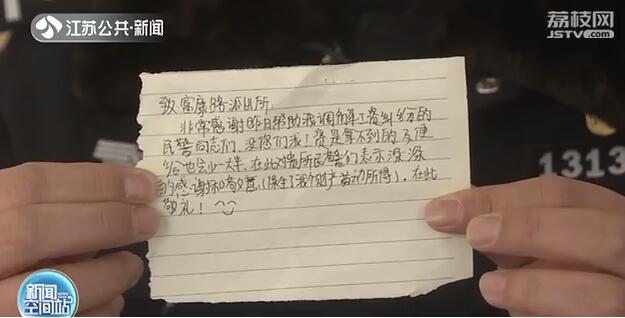 江苏公共·新闻
荔枝网
JSTV.com
致富康路派出所:
非常感谢昨日帮助我调解工资纠纷的
民警同志们,没你们我工资是拿不到的及便
给也会少一大半,在此对贵所民警们表示深深
的感谢和敬意(保住了我个财产劳动所得)。在此
敬礼!
1313
新闻
空间站